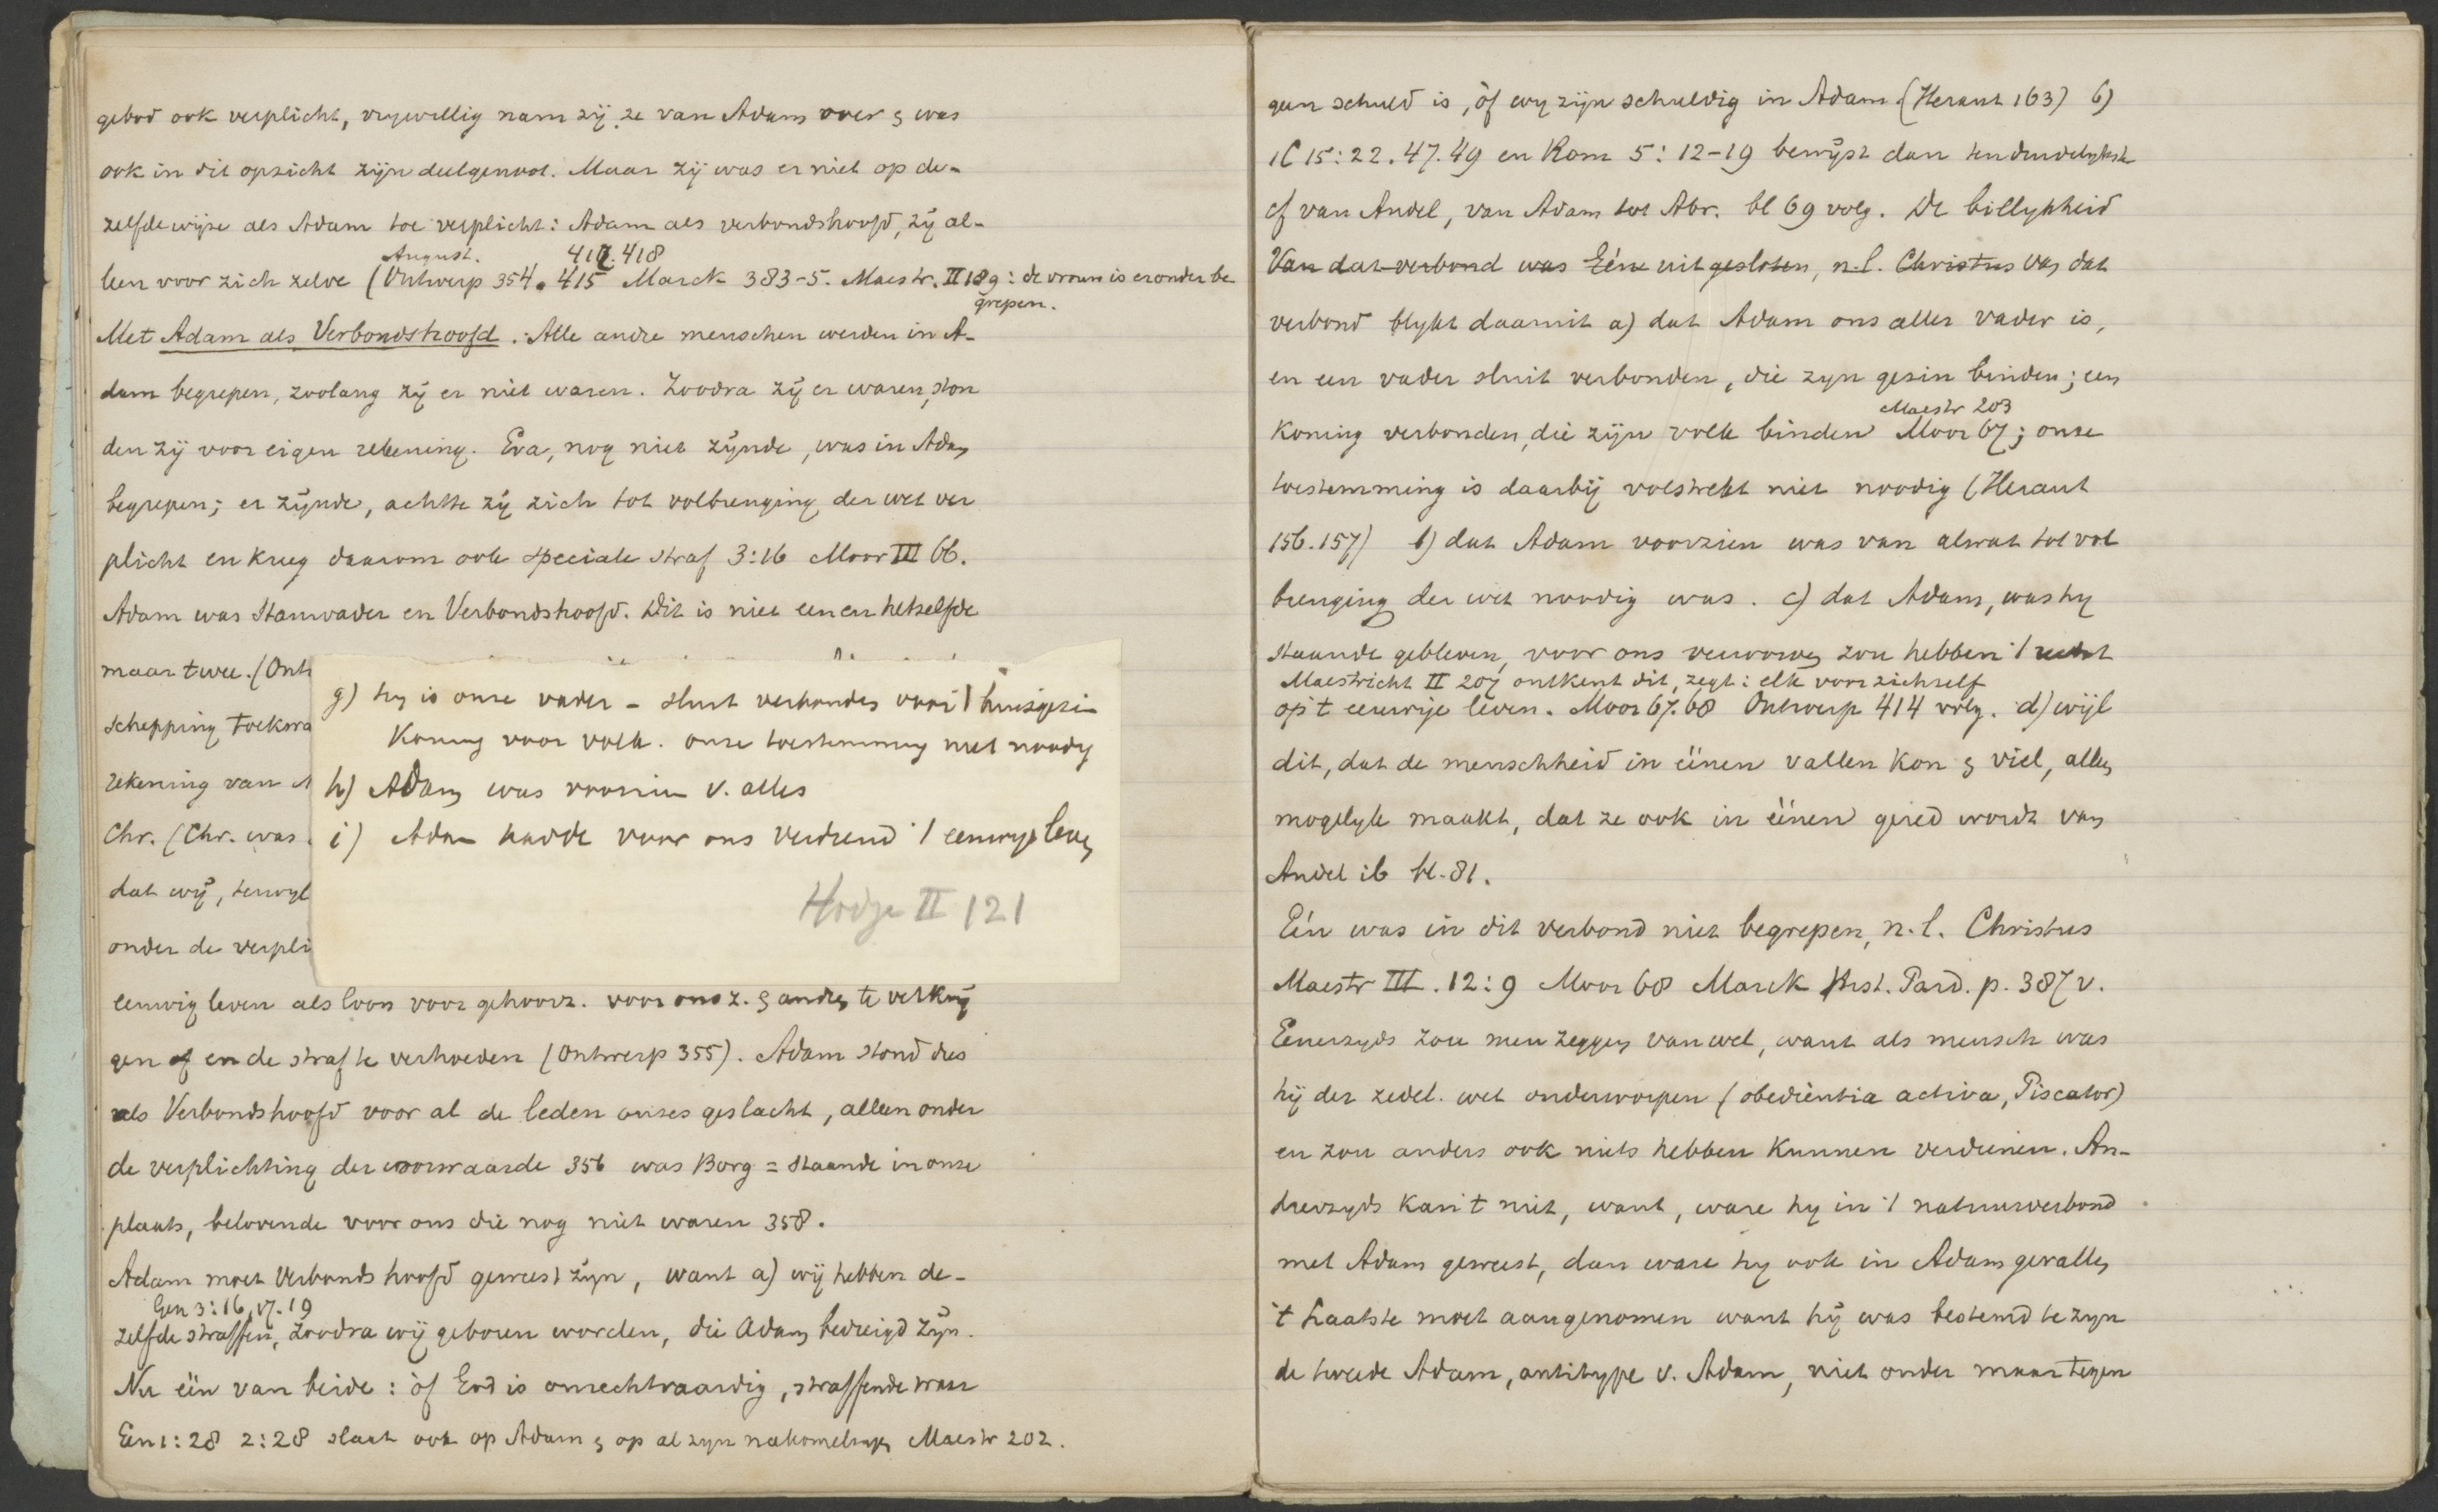 gebod ook verplicht, vrywillig nam zij ze van Adam over & was
ook in dit opzicht zijn deelgenoot. Maar zij was er niet op de-
zelfde wijze als Adam toe verplicht: Adam als verbondshoofd, zij al-
August. 417.418
leen voor zich zelve (Ontwerp 354. 415 Marck 383-5. Maestr. II 189: de vrouw is eronder be
grepen.
Met Adam als Verbondshoofd. Alle andre menschen werden in A-
dam begrepen, zoolang zij er niet waren. Zoodra zij er waren, ston
den zij voor eigen rekening. Eva, nog niet zijnde, was in Adam
begrepen; er zijnde, achtte zij zich tot volbrenging der wet ver
plicht en kreeg daarom ook speciale straf 3:16 Moor III 66.
Adam was Stamvader en Verbondshoofd. Dit is niet een en hetzelfde
maar twee. (Ont
schepping toekwa
rekening van A
Chr. (Chr. was
dat wij, terwyl
onder de verpli
g) hy is onze vader - sluit verbonden voor 't huisgezin
Koning voor volk. onze toestemming niet noodig
h) Adam was voorzien v. alles
i) Adam hadde voor ons verdiend 't eeuwige leven
Hodge II 121
eeuwig leven als loon voor gehoorz. voor ons z. & andren te verkrij
gen of en de straf te verhoeden (Ontwerp 355). Adam stond dus
als Verbondshoofd voor al de leden onzes geslacht, alleen onder
de verplichting der voorwaarde 356 was Borg = staande in onze
plaats, belovende voor ons die nog niet waren 358.
Adam moet Verbondshoofd geweest zijn, want a) wij hebben de-
Gen 3:16, 17.19
zelfde straffen, zoodra wij geboren worden, die Adam bedreigd zijn.
Nu eën van beide: òf God is onrechtvaardig, straffende waar
Gen 1:28 2:28 slaat ook op Adam & op al zyn nakomelingen Maestr 202.
geen schuld is, òf wy zijn schuldig in Adam (Heraut 163) b)
1C 15:22.47.49 en Rom 5:12-19 bewijst dan ten duidelykste
cf van Andel, van Adam tot Abr. bl 69 volg. De billykheid
Van dat verbond was Eéne uitgesloten, n.l. Christus van dat
verbond blykt daaruit a) dat Adam ons aller vader is,
en een vader sluit verbonden, die zyn gezin binden; een
Maestr 203
Koning verbonden, die zijn volk binden Moor 67; onze
toestemming is daarbij volstrekt niet noodig (Heraut
156.157) b) dat Adam voorzien was van alwat tot vol
brenging der wet noodig was. c) dat Adam, was hy
staande gebleven, voor ons verworven zou hebben 't recht
Maestricht II 207 ontkent dit, zegt: elk voor zichzelf
op 't eeuwige leven. Moor 67.68 Ontwerp 414 volg. d) wijl
dit, dat de menschheid in éënen vallen kon & viel, alleen
mogelyk maakt, dat ze ook in éënen gered wordt van
Andel ib bl. 81.
Eén was in dit verbond niet begrepen, n.l. Christus
Maestr III. 12:9 Moor 68 Marck Hist. Parad. p. 387 v.
Eenerzyds zou men zeggen van wel, want als mensch was
hij der zedel. wet onderworpen (obedientia activa, Piscator)
en zou anders ook niets hebben kunnen verdienen. An-
drerzyds kan 't niet, want, ware hy in 't natuurverbond
met Adam geweest, dan ware hy ook in Adam gevallen
't Laatste moet aangenomen want hij was bestemd te zyn
de tweede Adam, antitype v. Adam, niet onder maar tegen